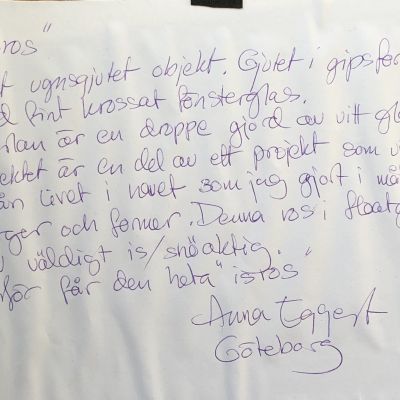 ros"
t ugnsgjutet objekt. Gjutet i gipsfor
d fint krossat fönsterglas.
rlan är en droppe gjord av vitt gl
ektet är en del av ett projekt som
ån livet i havet som jag gjort i må
rger och former. Denna ros i floatg
väldigt is/snöaktig.
för får den heta "isros"
Anna Eggert
Göteborg